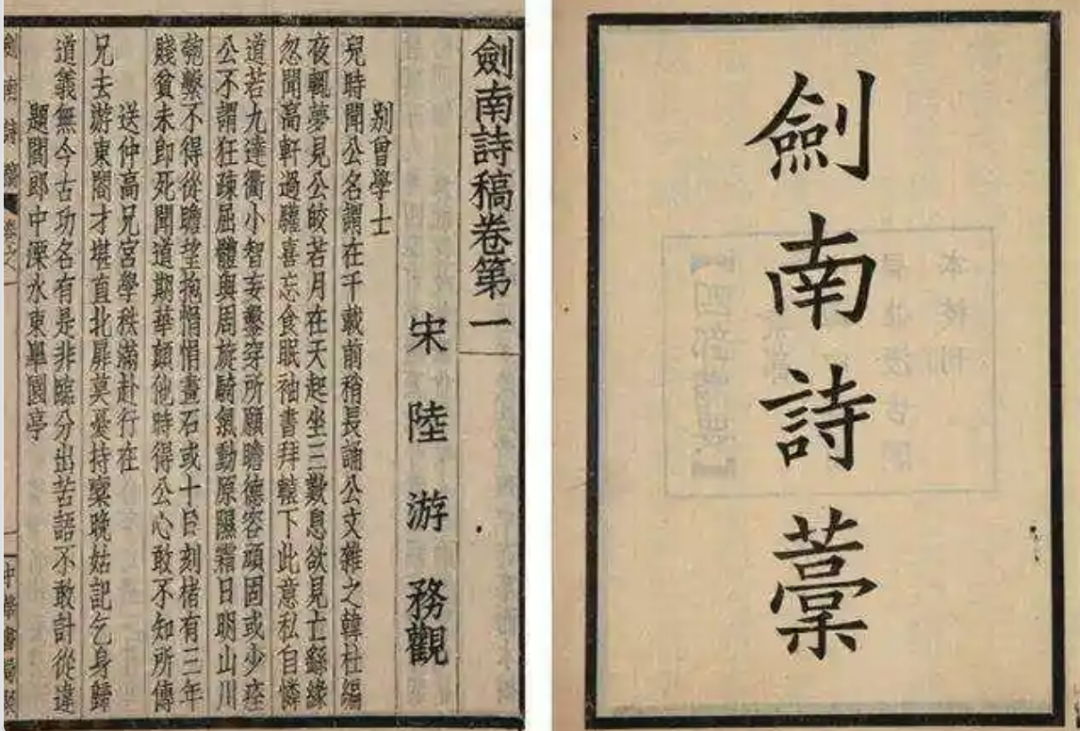 劍南詩藁
劍南詩稿卷第一
宋陸游務觀
別曾學士
兒時聞公名謂在千載前稍長誦公文雜之韓杜編
夜輒夢見公皎若月在天起坐三歎息欲見亡繇緣
忽聞高軒過驩喜忘食眠袖書拜轅下此意私自憐
道若九達衢小智妄鑿穿所願瞻德容頑固或少痊
公不謂狂疎屈體與周旋騎氣動原隰霜日明山川
匏繫不得從瞻望抱悁悁畫石或十日刻楮有三年
賤貧未即死聞道期華顛他時得公心敢不知所傳
送仲高兄宮學秩滿赴行在
兄去游東閤才堪直北扉莫憂持橐晚姑記乞身歸
道義無今古功名有是非臨分出苦語不敢計從違
題閻郎中溧水東臯園亭
劍南詩稿 卷之一 中華書局聚